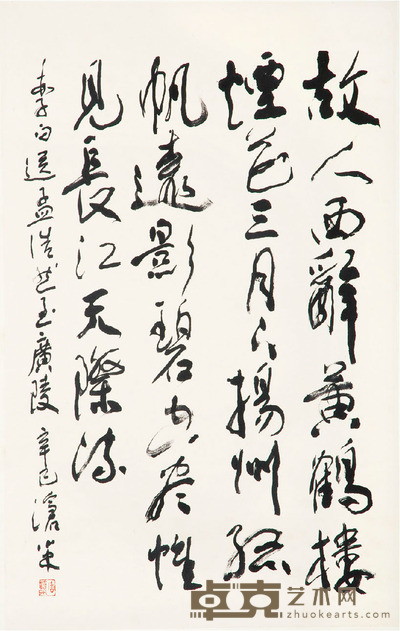 故人西辭黃鶴樓
煙花三月下揚州孤
帆遠影碧空尽惟
見長江天際流
李白送孟浩然至廣陵 辛巳滄米
卓克艺术网
www.zhuokearts.com